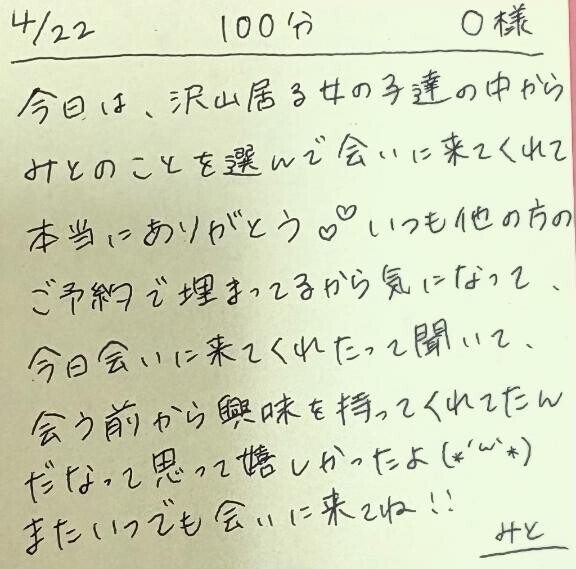 4/22 100分 O様
今日は、沢山居る女の子達の中から
みとのことを選んで会いに来てくれて
本当にありがとう♡♡いつも他の方の
ご予約で埋まってるから気になって、
今日会いに来てくれたって聞いて、
会う前から興味を持ってくれてたん
だなって思って嬉しかったよ(*´ω`*)
またいつでも会いに来てね!!
みと